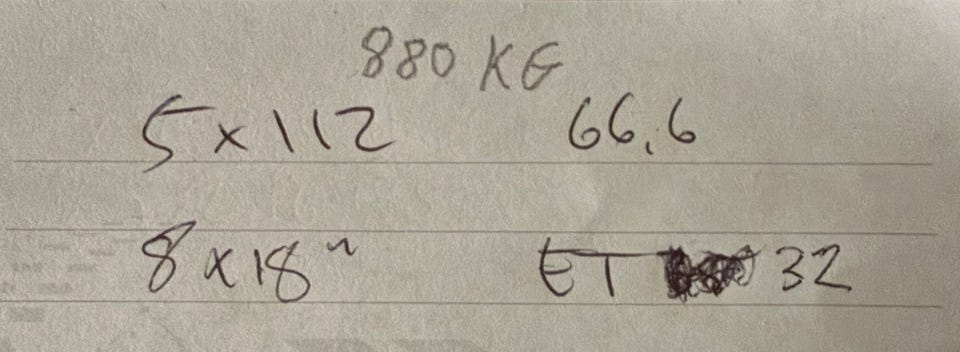 880 KG
5x112 66,6
8x18" ET 32